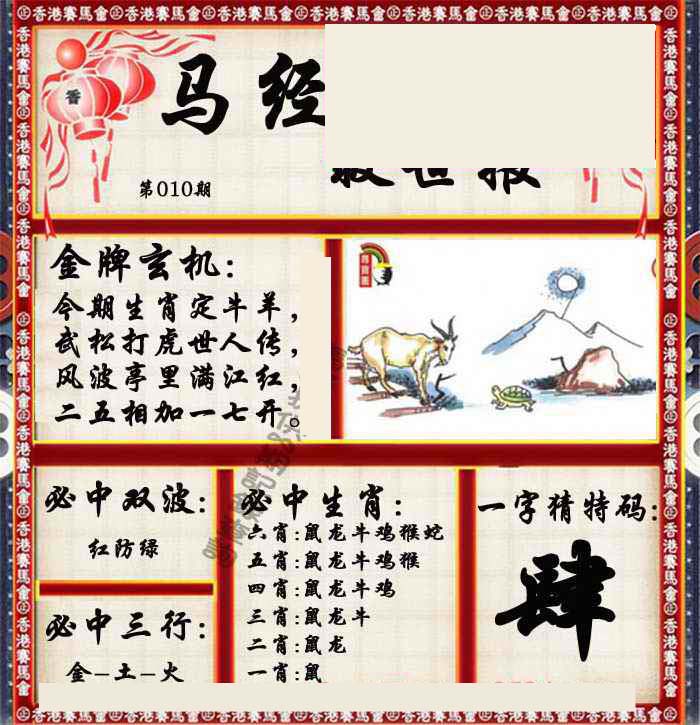 香港賽馬會
马经
救世报
香
第010期
金牌玄机:
今期生肖定牛羊,
武松打虎世人传,
风波亭里满江红,
二五相加一七开。
必中双波:
红防绿
必中三行:
金-土-火
必中生肖:
六肖:鼠龙牛鸡猴蛇
五肖:鼠龙牛鸡猴
四肖:鼠龙牛鸡
三肖:鼠龙牛
二肖:鼠龙
一肖:鼠
一字猜特码:
肆